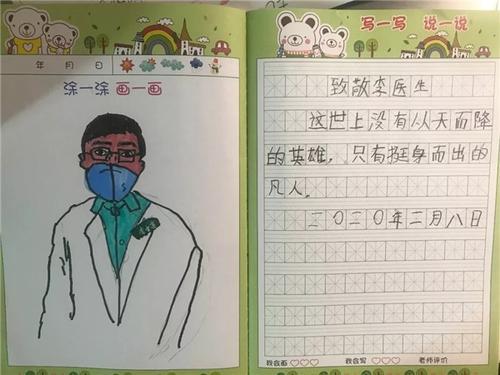 年 月 日
涂一涂 画一画
写一写 说一说
致敬李医生
这世上没有从天而降
的英雄，只有挺身而出的
凡人.
二〇二〇年二月八日
我会画♡♡♡ 我会写♡♡♡ 老师评价